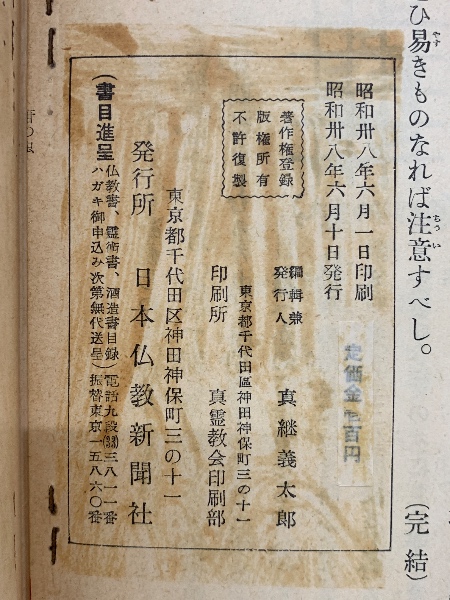 ひ易きものなれば注意すべし。
(完結)
昭和卅八年六月一日印刷
昭和卅八年六月十日発行
定価金 百円
著作権登録
版権所有
不許復製
編輯兼
発行人
真継義太郎
東京都千代田區神田神保町三の十一
印刷所
真霊教会印刷部
東京都千代田区神田神保町三の十一
発行所 日本仏教新聞社
電話九段(331)三八一一番
振替東京一五八六〇番
(書目進呈
仏教書、霊術書、酒造書目録
ハガキ御申込み次第無代送呈)